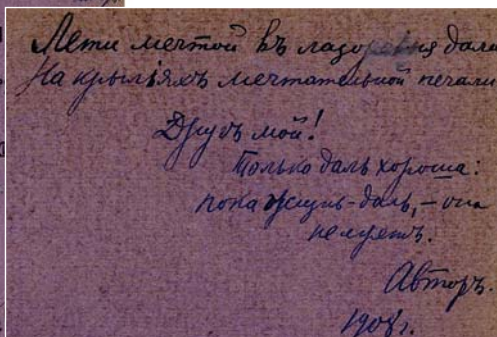 Лети мечтой въ лазоревыя дали
На крыльяхъ мечтательной печали
Другъ мой!
Только даль хороша:
пока жизнь-даль,— она
авторъ.
1908г.